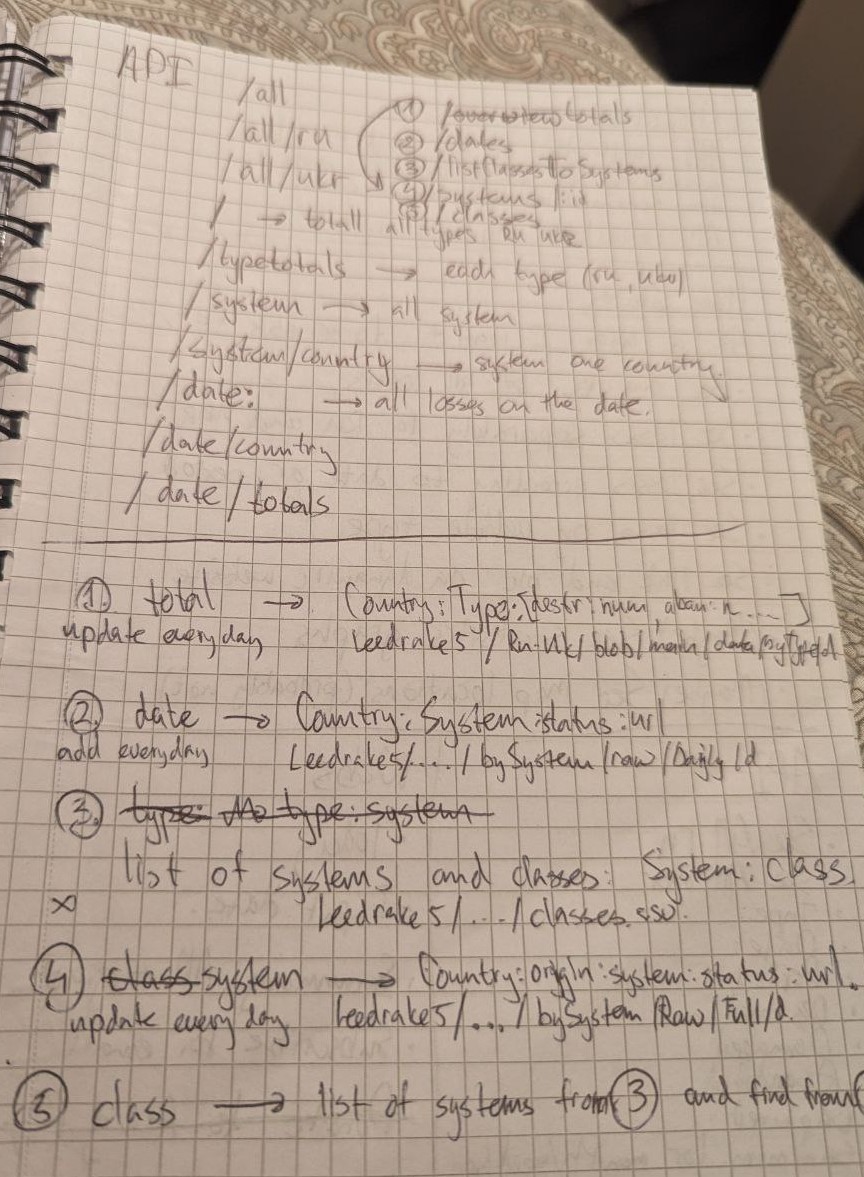 API
/all
/all/ru
/all/ukr
/ → totall all types RU UKR
① /overview totals
② /dates
③ /listClassesToSystems
④ /systems /:id
⑤ /classes
/typetotals → each type (ru, ukr)
/system → all system
/system/country → system one country.
/date: → all losses on the date.
/date/country
/date/totals
① total → Country: Type: [destr: num, aban: n ....]
update everyday leedrake5 / Ru-Uk/ blob/ main/ data/ byType/d
② date → Country: System: status: url
add everyday Leedrake5/..../ bySystem /raw/ Daily /d
③. type: type: system
list of systems and classes: System: class.
x Leedrake5/..../classes.csv.
④ class system → Country: origin: system: status: url.
update every day Leedrake5/..../ bySystem /Raw/ Full/d.
⑤ class → list of systems from ③ and find from